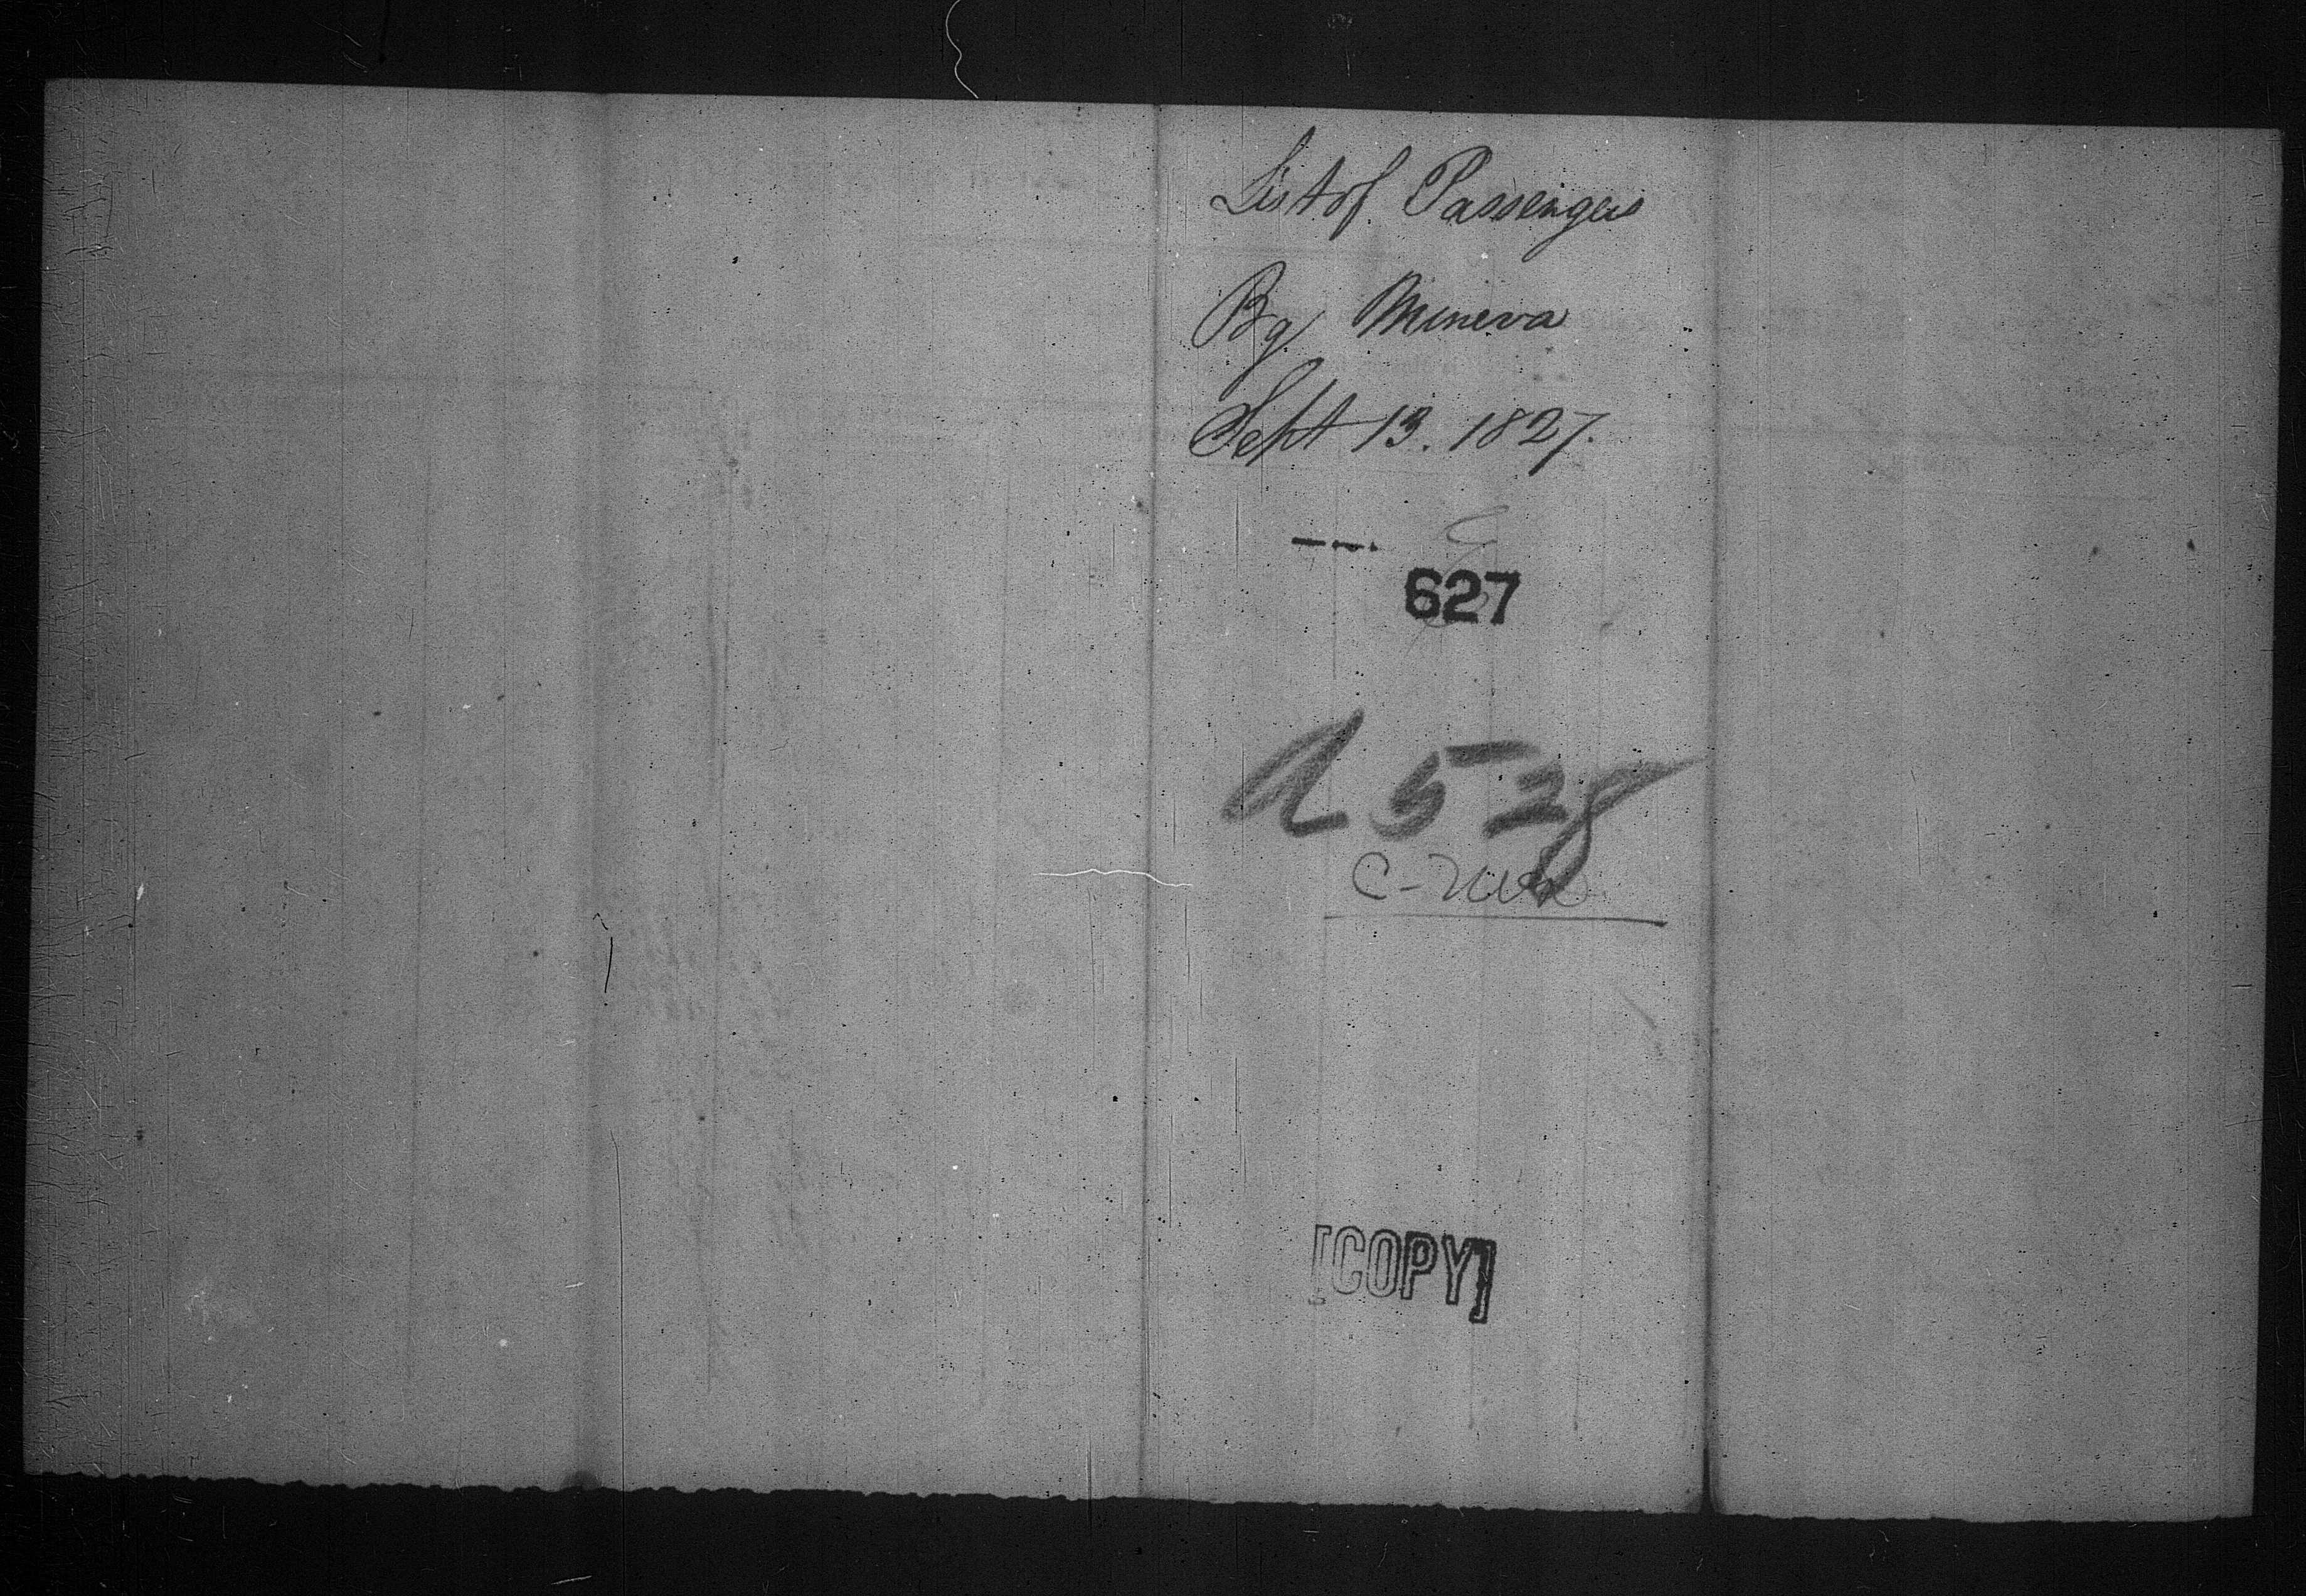 List of Passengers
Bg Minerva
Sept 13. 1827.
627
[COPY]